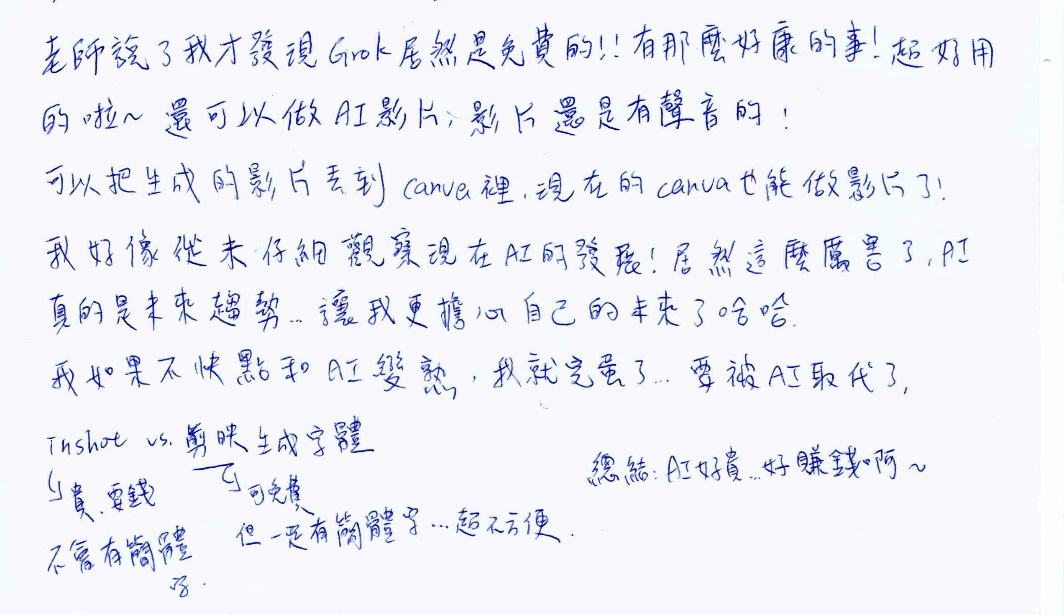 老師說了我才發現Grok居然是免費的!!有那麼好康的事!超好用
的啦~ 還可以做AI影片,影片還是有聲音的!
可以把生成的影片丟到canva裡,現在的canva也能做影片了!
我好像從未仔細觀察現在AI的發展!居然這麼厲害了,AI
真的是未來趨勢...讓我更擔心自己的未來了哈哈.
我如果不快點和AI變熟,我就完蛋了...要被AI取代了,
Inshot vs. 剪映生成字體
貴、要錢
可免費
總結:AI好貴...好賺錢啊~
不會有簡體字.
但一定有簡體字...超不方便.